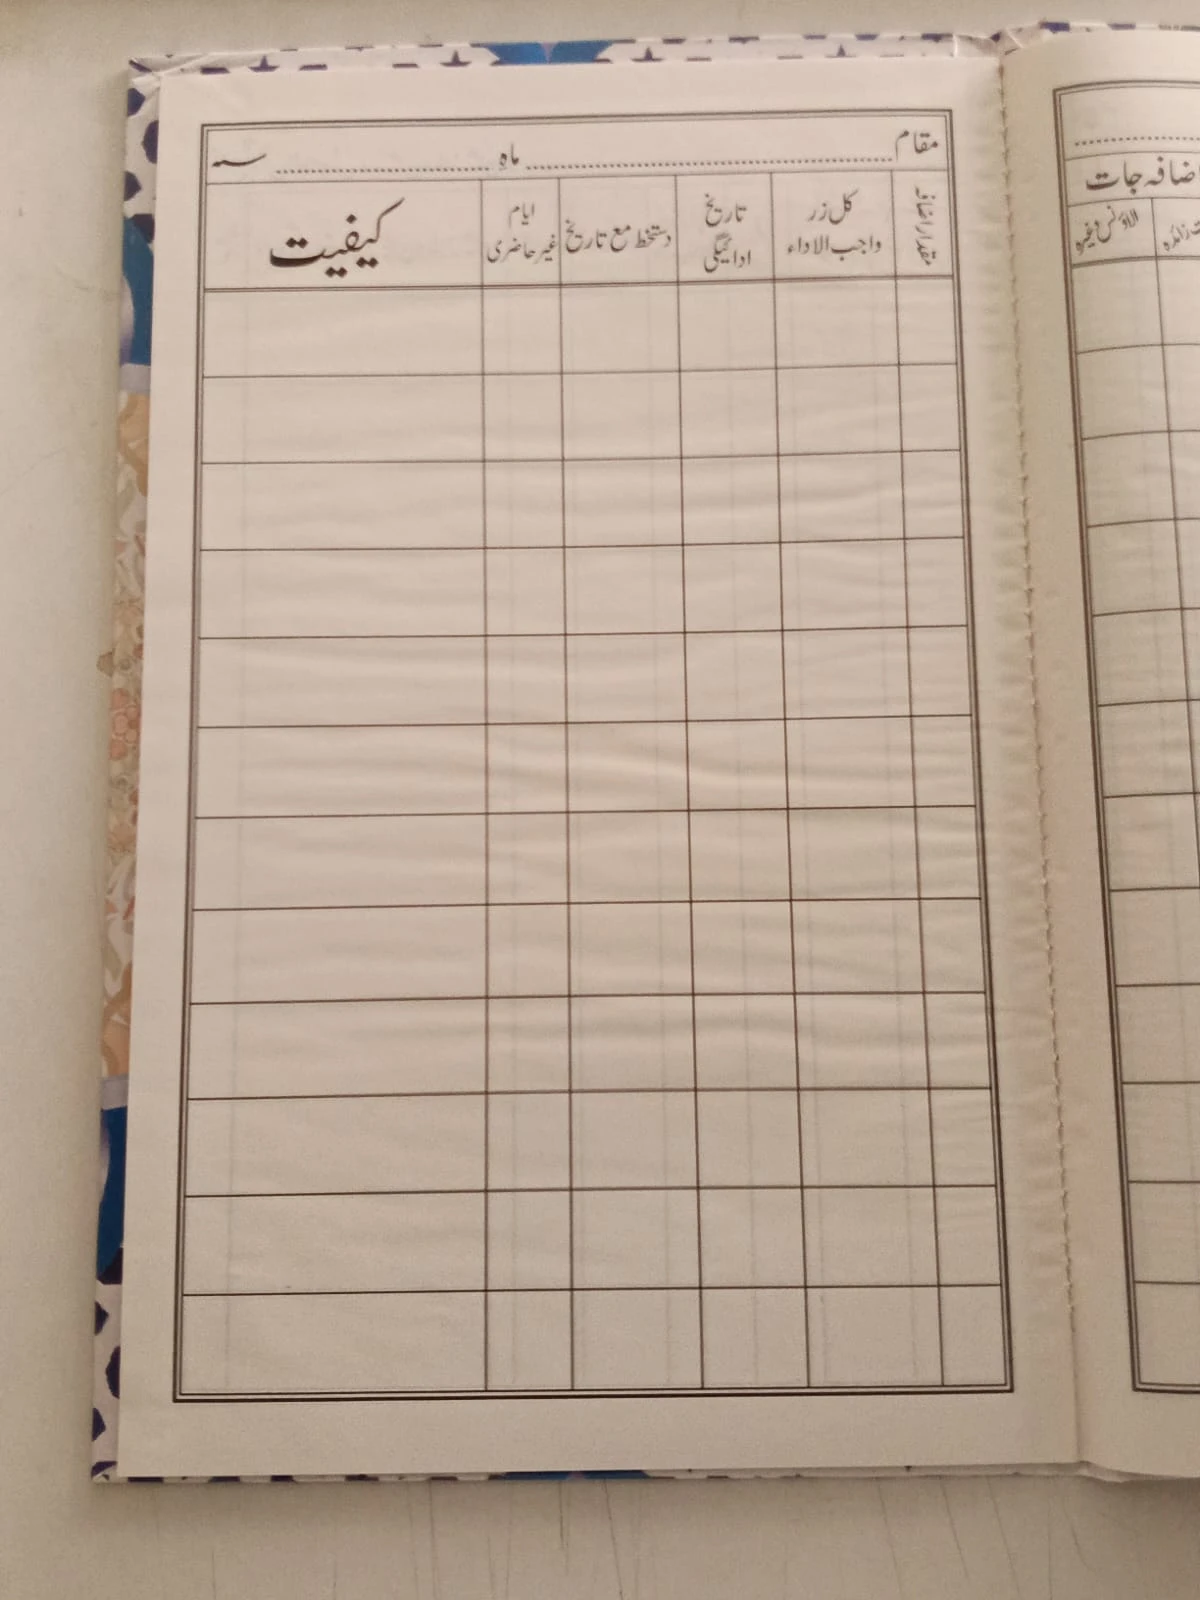 مقام ........ ماہِ ........ سنہ
مقدار اضافہ
کل زر
واجب الاداء
تاریخ
ادائیگی
دستخط مع تاریخ
ایام
غیر حاضری
کیفیت
ضافہ جات
الاؤنس وغیرہ